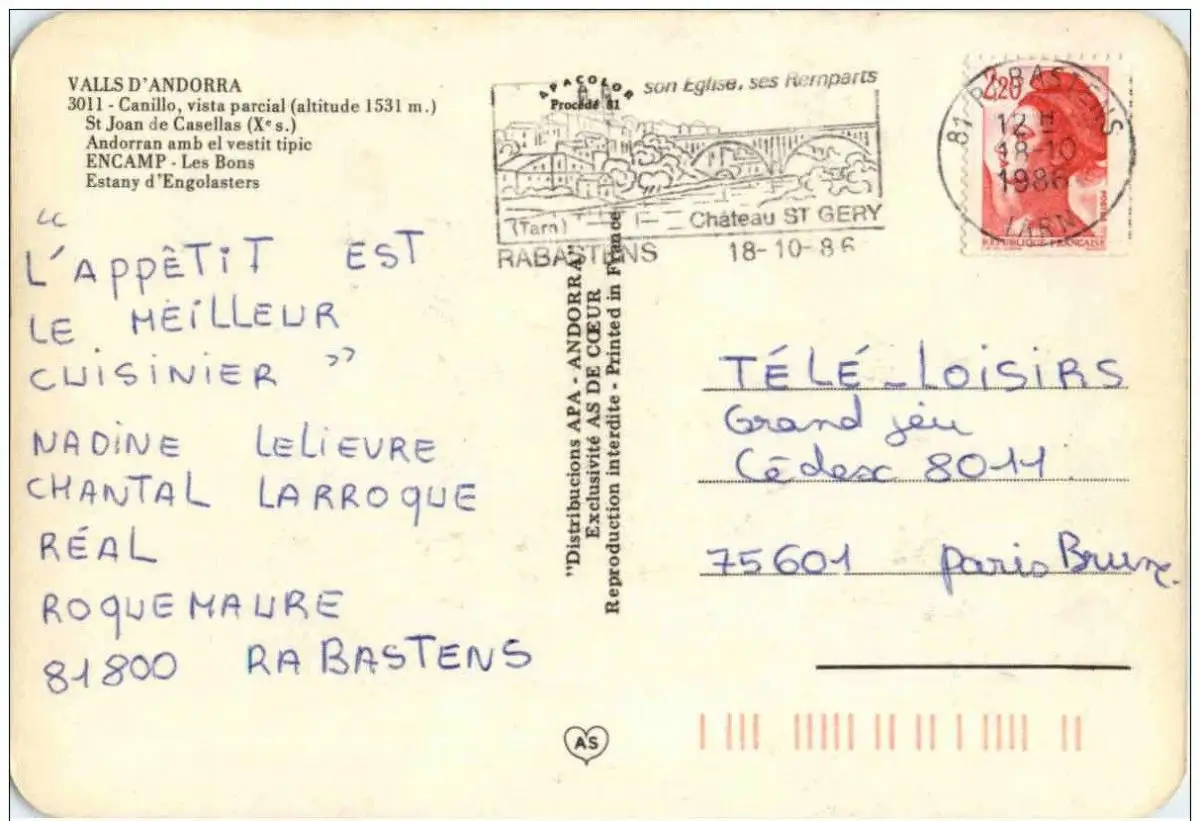 VALLS D'ANDORRA
3011 - Canillo, vista parcial (altitude 1531 m.)
St Joan de Casellas (Xe s.)
Andorran amb el vestit típic
ENCAMP - Les Bons
Estany d'Engolasters
APACOLOR
Procédé 81
son Eglise, ses Remparts
(Tarn)
Château ST GERY
RABASTENS
18-10-86
2,20
81 RABASTENS
12 H
18-10
1986
TARN
POSTES
REPUBLIQUE FRANÇAISE
“
L'APPÊTiT EST
LE MEiLLEUR
CUiSiNiER ”
NADiNE LELiEVRE
CHANTAL LARROQUE
RÉAL
ROQUEMAURE
81800 RABASTENS
"Distribucions APA - ANDORRA"
Exclusivité AS DE CŒUR
Reproduction interdite - Printed in France
TÉLÉ-LOiSiRS
Grand jeu
Cédex 8011.
75601 paris Brune.
AS